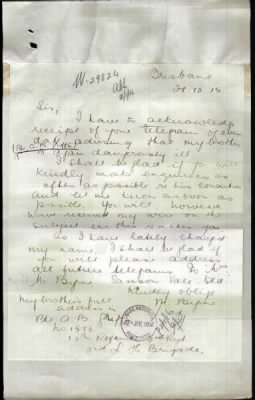 W. 29824
Brisbane
28 12 15
Sir,
I have to acknowledge
receipt of your telegram of even
date advising that my brother
is again dangerously ill.
I shall be glad if you will
kindly make enquiries as
often as possible re his condition
and let me know as soon as
possible. You will however
have received my wire on the
subject ere this reaches you
As I have lately changed
my name, I shall be glad if
you will please address
all future telegrams to Mrs
M Byrne Samson Vale Qld
Kindly oblige
M. Byrne
My brother's full
address is
A. B.
No 1586
Regt
3rd L. H. Brigade.